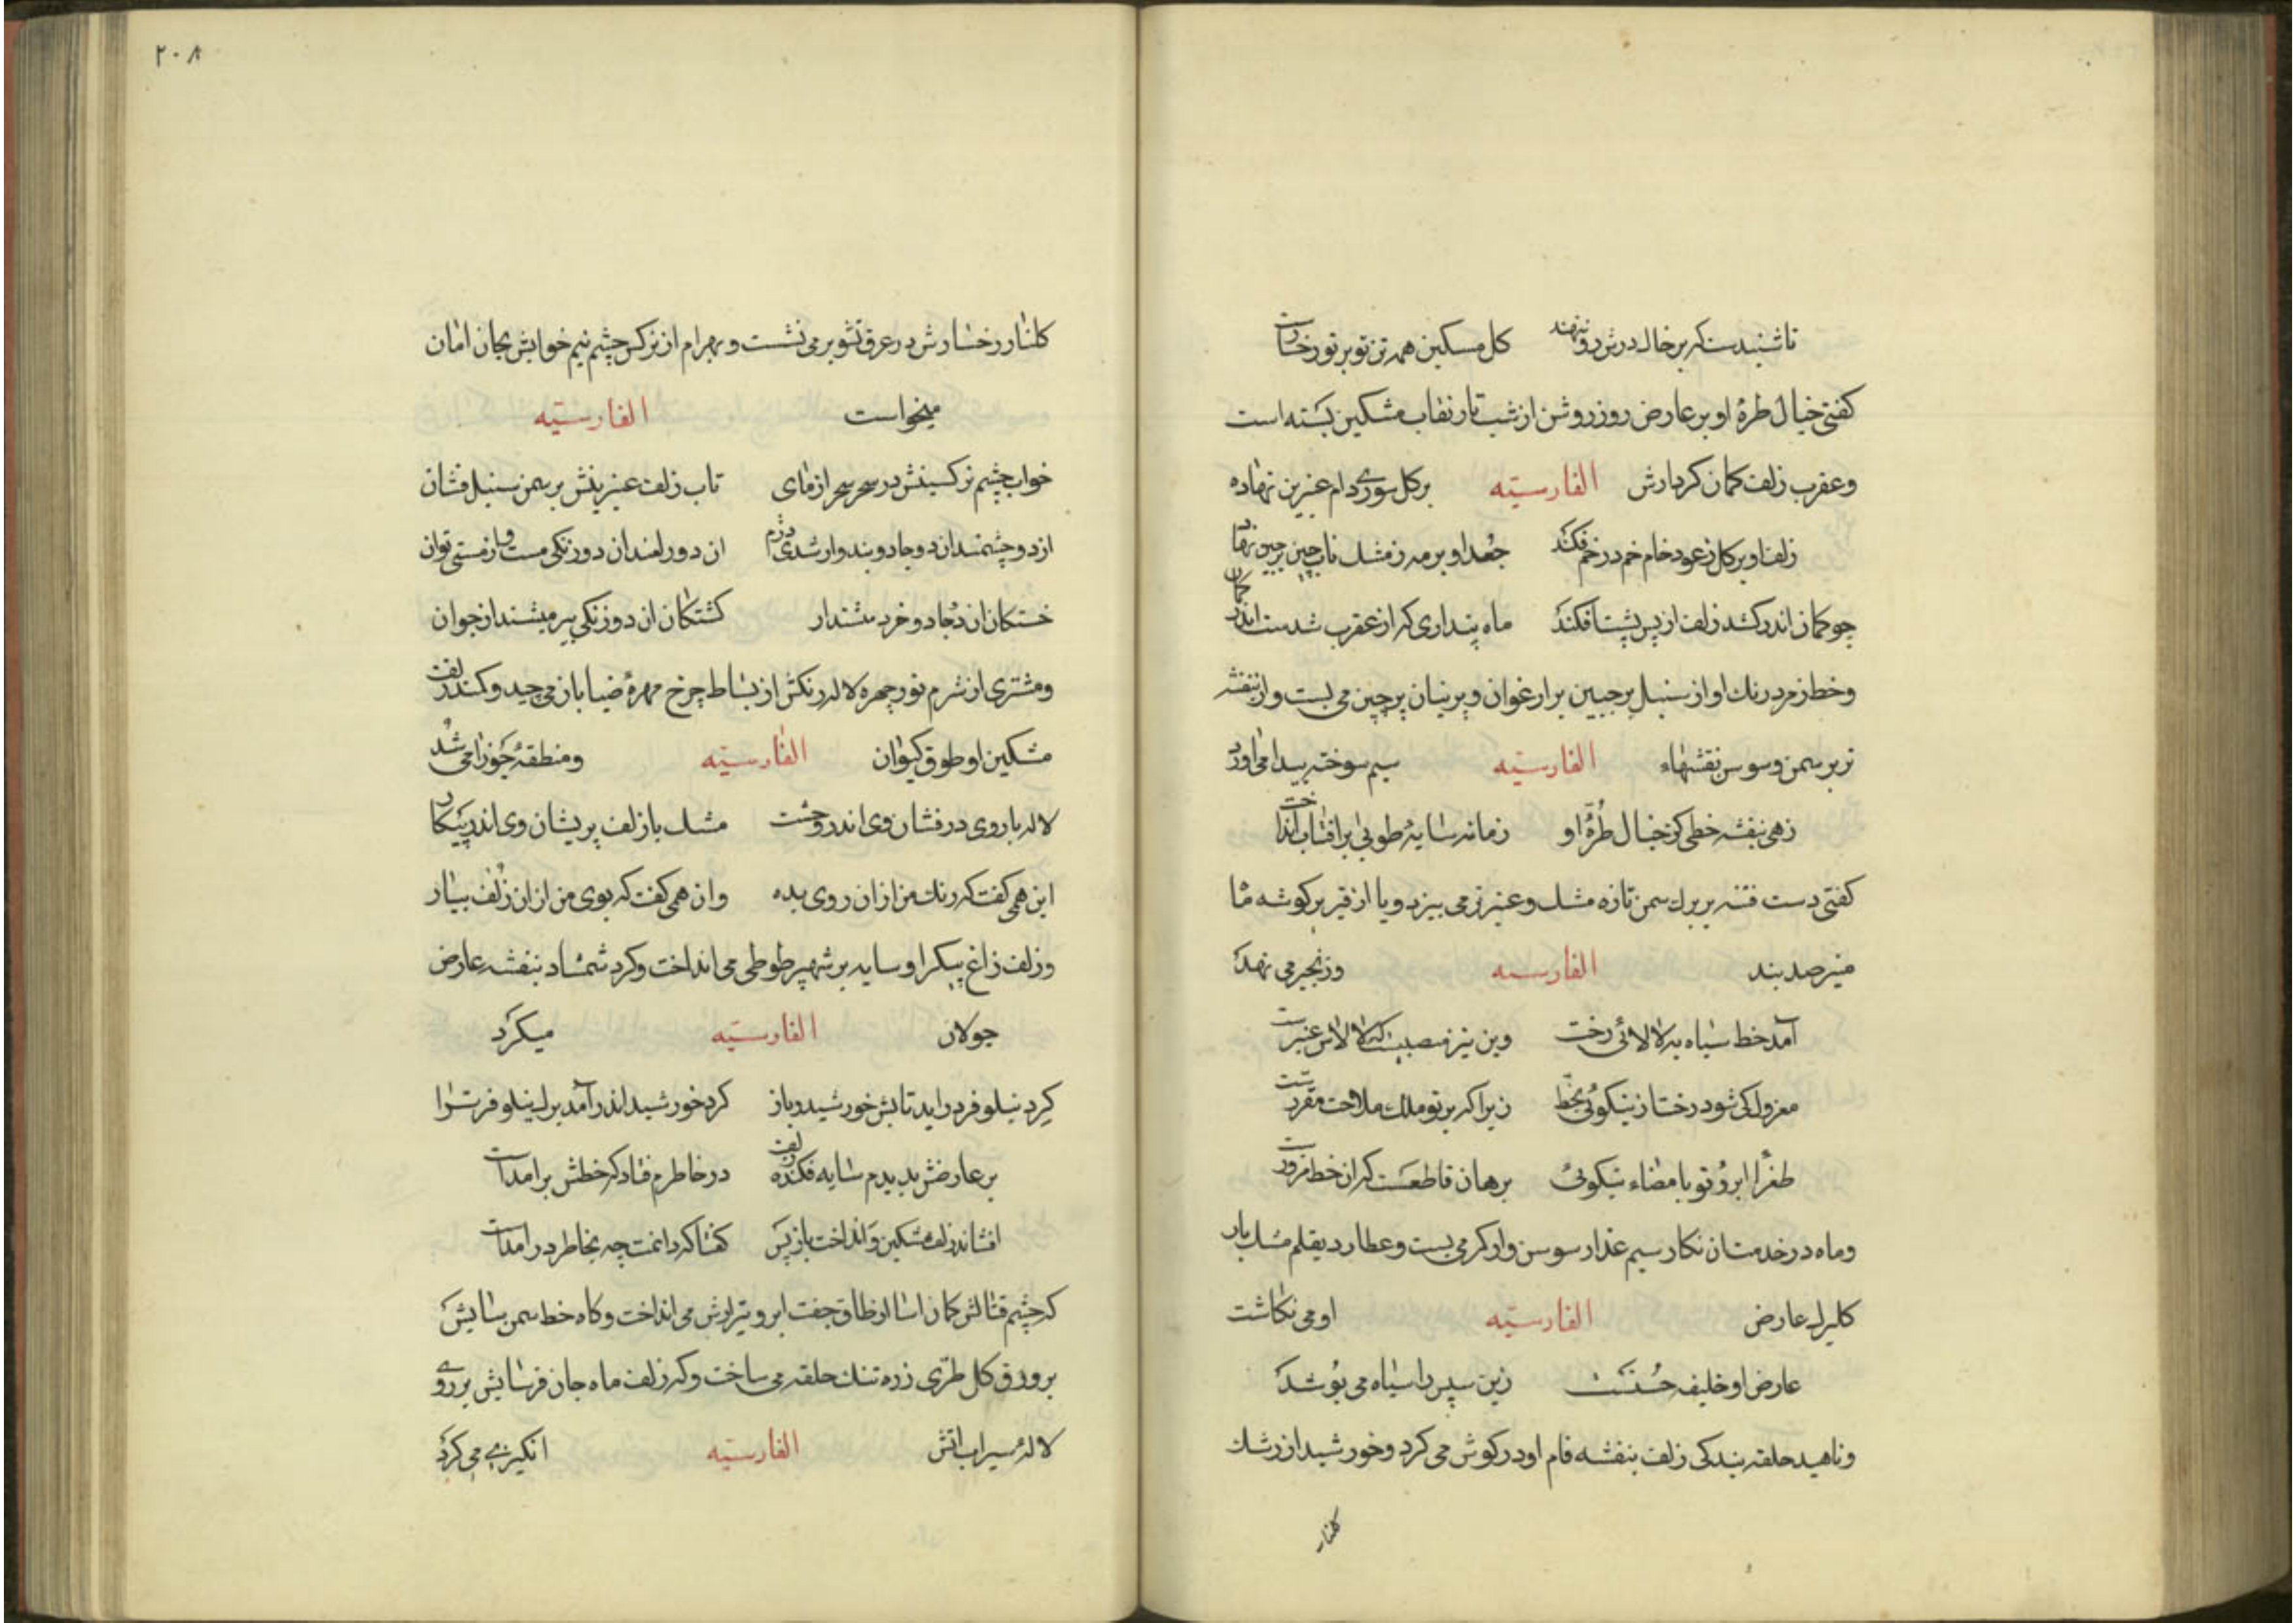 تا شنیدست که بر خال درش رو ننهند کل مسکین همه تن تو بر تو رخسارست
کفتی خیال طرهٔ او بر عارض روز روشن از شب تار نقاب مشکین بسته است
وعقرب زلف کمان کردارش الفارسیّه بر کل سوری دام عنبرین نهاده
زلف او بر کل ز عود خام خم در خم فکند جعد او بر مه ز مشک ناب چین بر چین نهاد
چو کمان اندر کشد زلف از پس پشت افکند ماه پنداری که از عقرب شدست اندر کمان
وخط زمرد رنک او از سنبل پرچین بر ارغوان و پرنیان پرچین می بست و از بنفشه
تر بر سمن و سوسن نقشهاء الفارسیّه سیم سوخته پیدا می اورد
زهی بنفشه خطی کز خیال طرّهٔ او زمانه سایهٔ طوبی بر افتاب انداخت
کفتی دست فتنه بر برک سمن تازه مشک و عنبر تر می بیزد و یا از قیر بر کوشه ما
منیر صد بند الفارسیه و زنجیر می نهد
آمد خط سیاه به لالائی رخت وین نیز منصبیست که لالاش عنبرست
معزول کی شود رخت از نیکوئی بخط زیرا که بر تو ملک ملاحت مقررست
طغرا ابروُ تو بامضاء نیکوئی برهان قاطعست که ان خط مزورست
وماه در خدمت ان نکار سیم عذار سوسن وار کمر می بست و عطارد بقلم مشک بار
کلبرک عارض الفارسیّه او می نکاشت
عارض او خلیفه حُسنست زین سپس را سیاه می پُوشد
وناهید حلقه بندکی زلف بنفشه فام او در کوش می کرد و خورشید از رشک
کلنار
۲۰۸
کلنار رخسارش در عرق تشویر می نشست و بهرام از نرکس چشم نیم خوابش بجان امان
میخواست الفارسیّه
خواب چشم نرکسینش در سحر سحر ازمای تاب زلف عنبرینش بر سمن سنبل فشان
از دو چشمند ان دو جادو بند وار شدی درم ان دو زلفند ان دو زنکی مست و از مستی توان
خستکان ان دو جادو خرد مشتدار کشتکان ان دو زنکی پیر میشند از جوان
ومشتری از شرم نور چهره لاله رنکش از بساط چرخ مهرهٔ ضیا باز می چید و کمند زلفت
مشکین او طوق کیوان الفارسیّه ومنطقهٔ جوزا می شد
لاله با روی درفشان وی اندر وحشت مشک با زلف پریشان وی اندر پیکار
این همی کفت که رنک من از ان روی بده وان همی کفت که بوی من از ان زلف بیار
وزلف زاغ پیکر او سایه بر شهپر طوطی می انداخت و کرد شمشاد بنفشه عارض
جولان الفارسیّه میکرد
کرد نیلوفر دراید تابش خورشید و باز کرد خورشید اندر آمد برک نیلوفر ترا
بر عارضش بدیدم سایه فکنده زلفت در خاطرم فتاد که خطش برامدست
افشاند زلف مشکین و انداخت باز پس کفتا که دانمت چه بخاطر درامدست
که چشم قتالش کمان اسا از طاق جفت ابرو تیر ارش می انداخت و کاه خط سمن سایش
بر ورق کل طری زره تنک حلقه می ساخت و که زلف ماه جان فرسایش بر روی
لالهٔ سیراب اتش الفارسیّه انکیزی می کرد